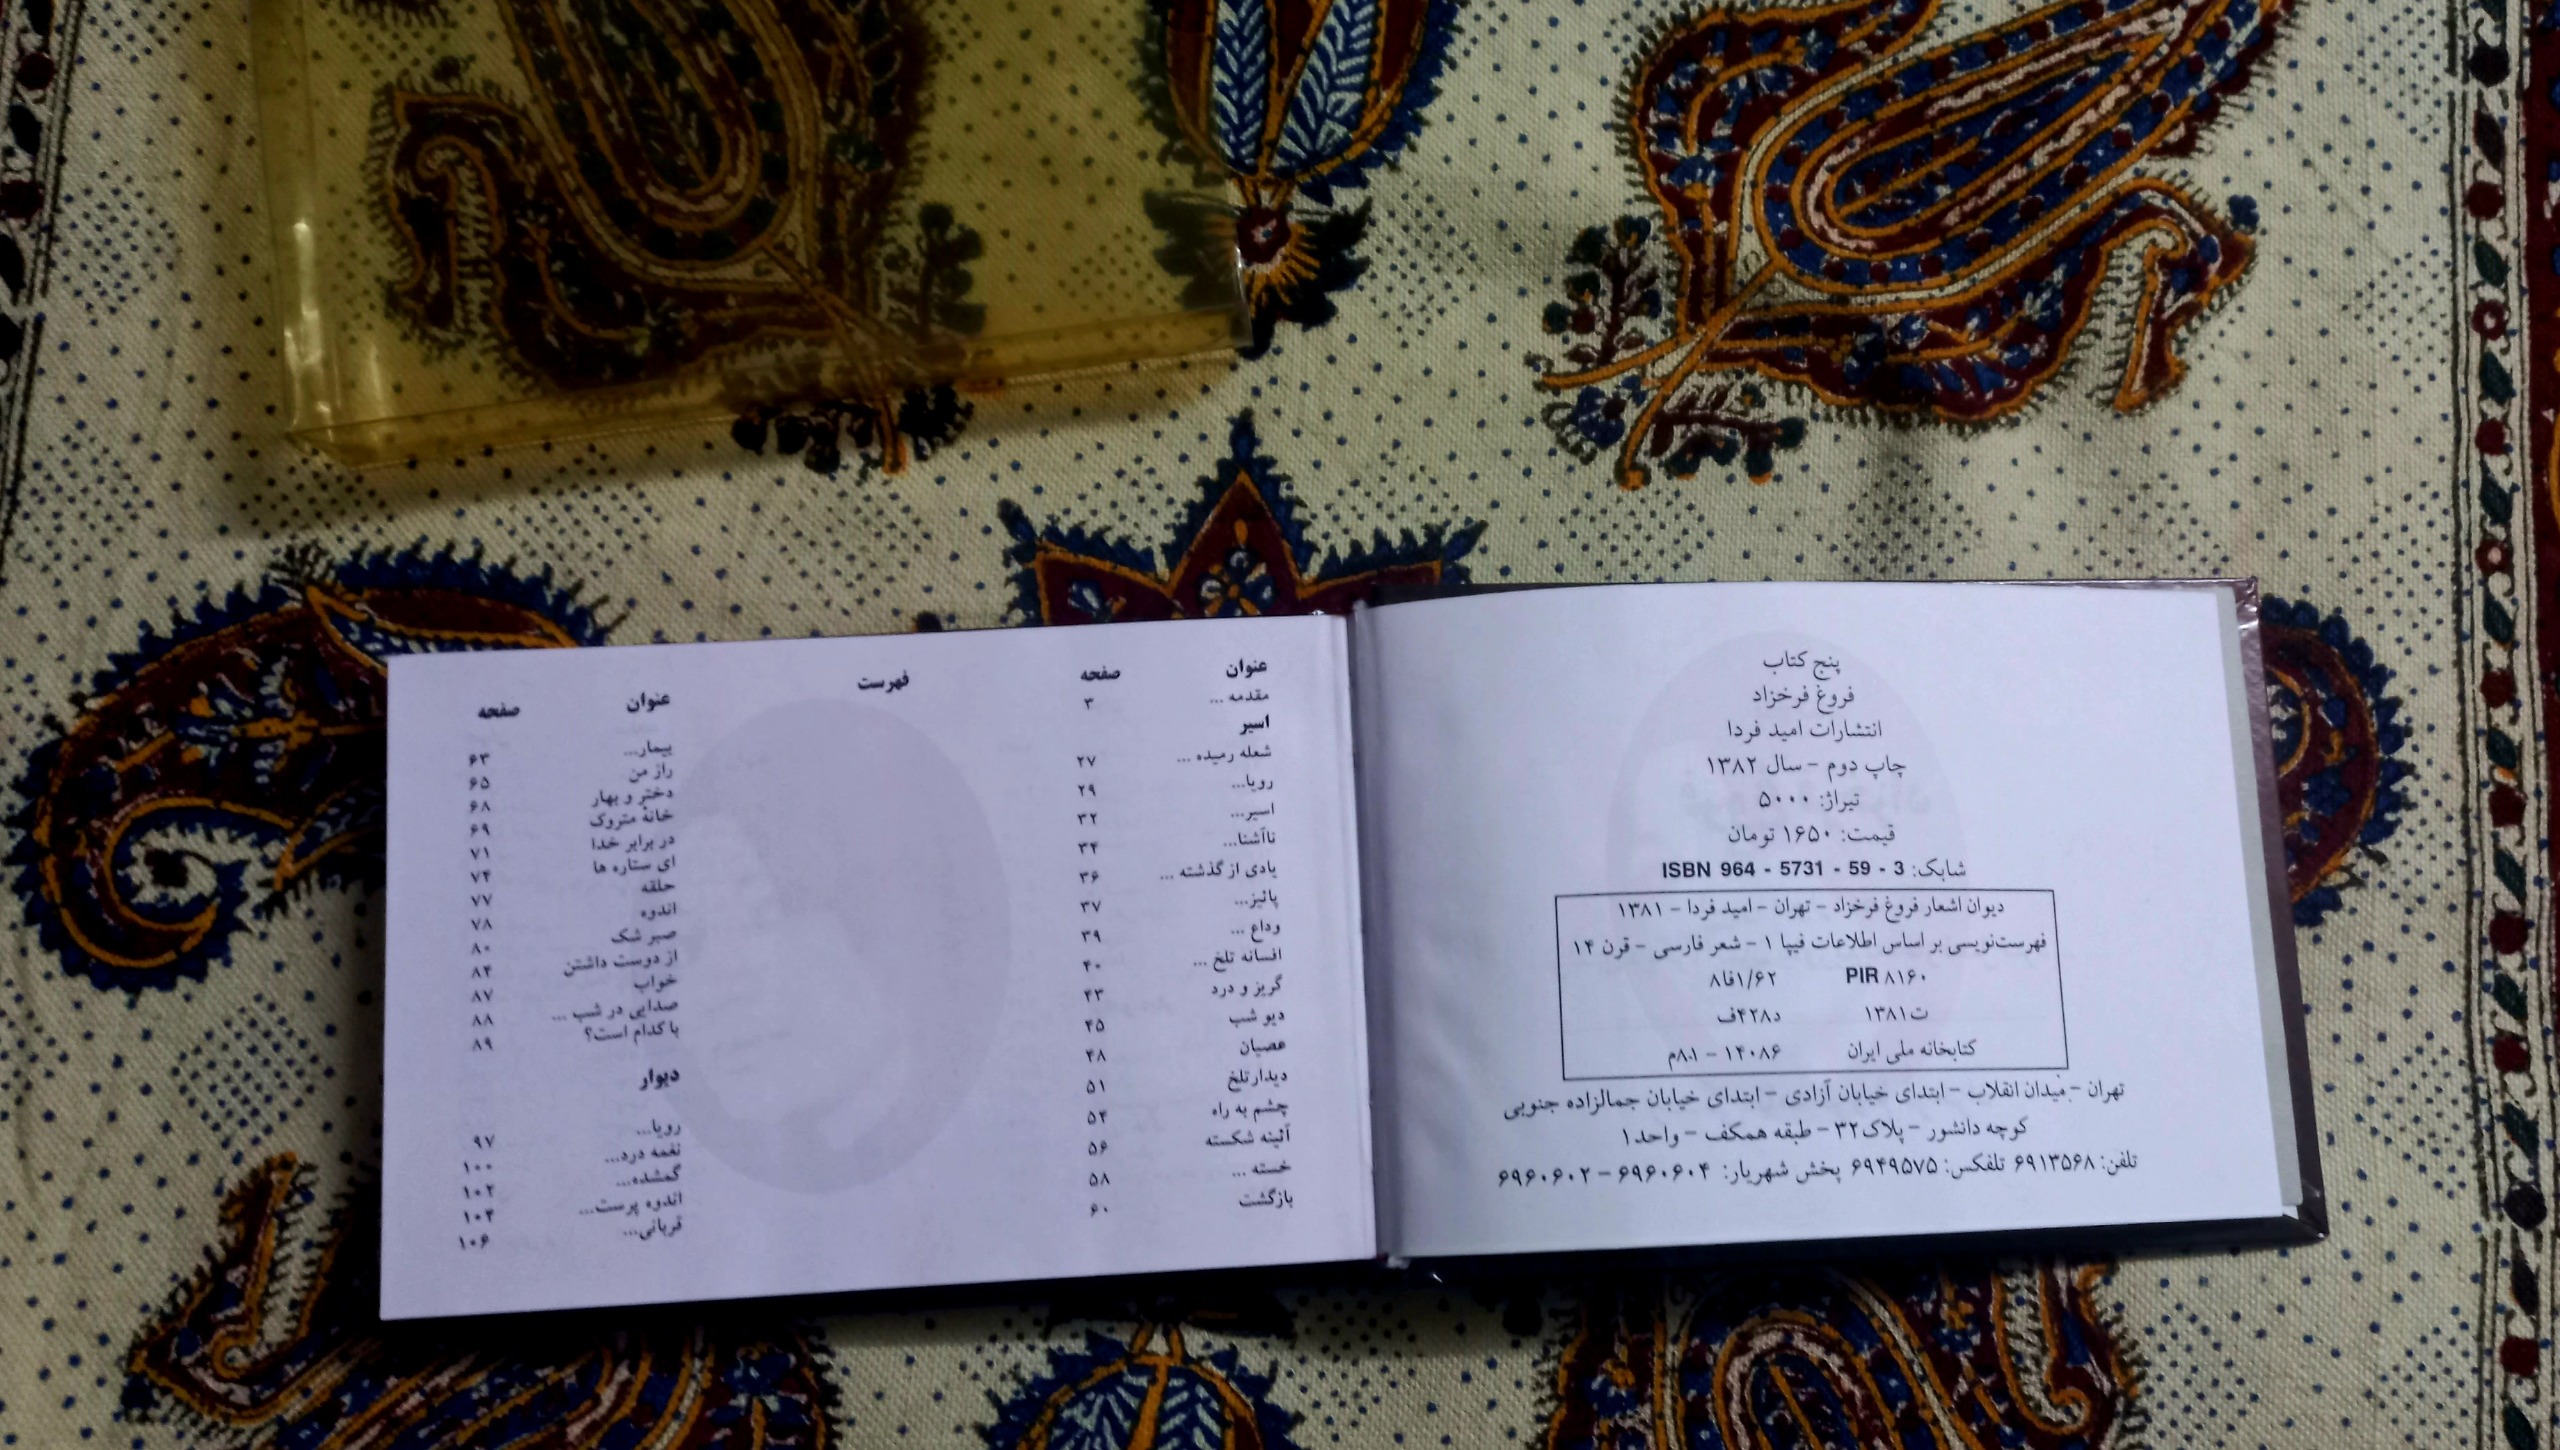 پنج کتاب
فروغ فرخزاد
انتشارات امید فردا
چاپ دوم - سال ۱۳۸۲
تیراژ: ۵۰۰۰
قیمت: ۱۶۵۰ تومان
شابک: ISBN 964 - 5731 - 59 - 3
دیوان اشعار فروغ فرخزاد - تهران - امید فردا - ۱۳۸۱
فهرست‌نویسی بر اساس اطلاعات فیپا ۱ - شعر فارسی - قرن ۱۴
PIR ۸۱۶۰ ۸فا۱/۶۲
ت۱۳۸۱ د۴۲۸ف
کتابخانه ملی ایران ۱۴۰۸۶ - ۸۰۱م
تهران - میدان انقلاب - ابتدای خیابان آزادی - ابتدای خیابان جمالزاده جنوبی
کوچه دانشور - پلاک۳۲ - طبقه همکف - واحد۱
تلفن: ۶۹۱۳۵۶۸ تلفکس: ۶۹۴۹۵۷۵ پخش شهریار: ۶۹۶۰۶۰۴ - ۶۹۶۰۶۰۲
فهرست
عنوان صفحه
مقدمه ... ۳
اسیر
شعله رمیده ... ۲۷
رویا... ۲۹
اسیر... ۳۲
ناآشنا... ۳۴
یادی از گذشته ... ۳۶
پائیز... ۳۷
وداع ... ۳۹
افسانه تلخ ... ۴۰
گریز و درد ۴۳
دیو شب ۴۵
عصیان ۴۸
دیدارتلخ ۵۱
چشم به راه ۵۴
آئینه شکسته ۵۶
خسته ... ۵۸
بازگشت ۶۰
عنوان صفحه
بیمار... ۶۳
راز من ۶۵
دختر و بهار ۶۸
خانهٔ متروک ۶۹
در برابر خدا ۷۱
ای ستاره ها ۷۴
حلقه ۷۷
اندوه ۷۸
صبر شک ۸۰
از دوست داشتن ۸۴
خواب ۸۷
صدایی در شب ... ۸۸
با کدام است؟ ۸۹
دیوار
رویا... ۹۷
نغمه درد... ۱۰۰
گمشده... ۱۰۲
اندوه پرست... ۱۰۴
قربانی... ۱۰۶